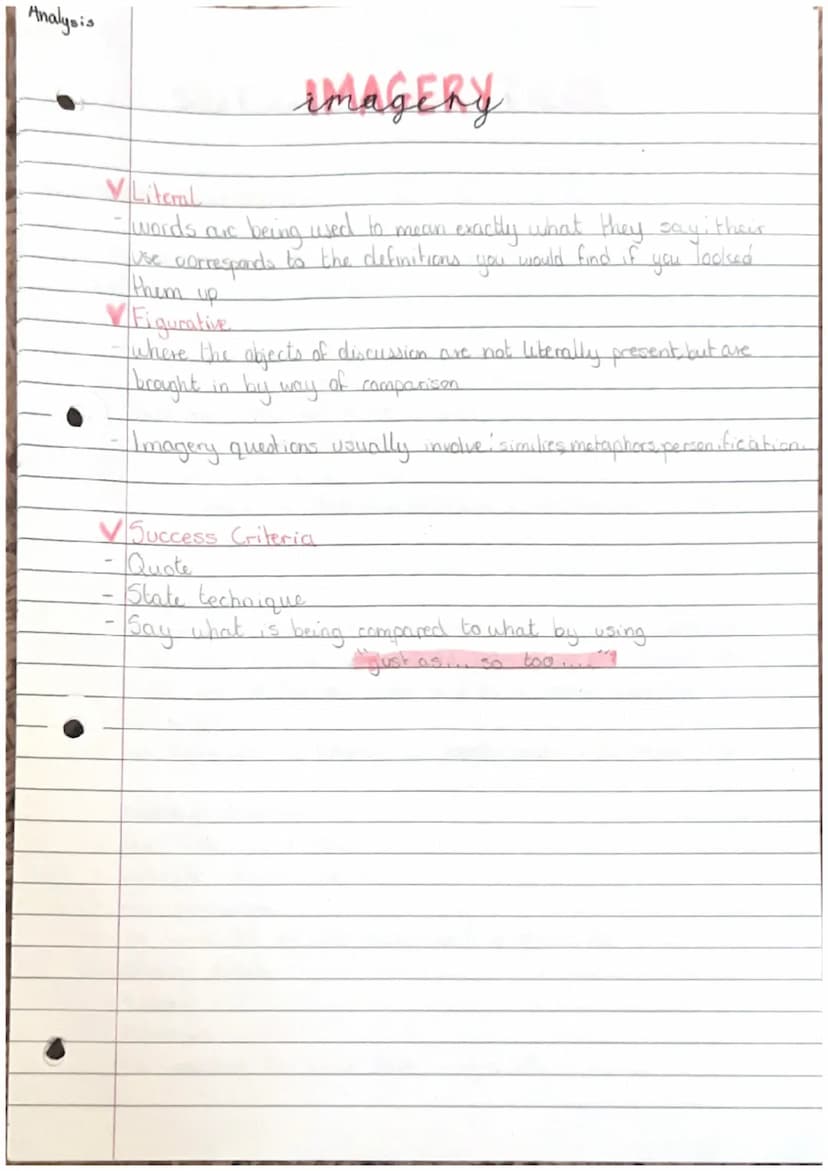 Analysis
IMAGERY
imagery
Literal
- words are being used to mean exactly what they say; their
use corresponds to the definitions you would find if you looked
them up
Figurative
- where the objects of discussion are not literally present, but are
brought in by way of comparison
- Imagery questions usually involve: similies, metaphors, personification.
Success Criteria
- Quote
- State technique
- Say what is being compared to what by using
"just as... so too...."